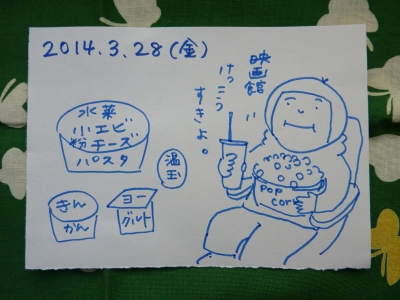 2014.3.28(金)
水菜
小エビ
粉チーズ
パスタ
温玉
きん
かん
ヨー
グルト
映画館
けっこう
すきよ。
POP
CORN